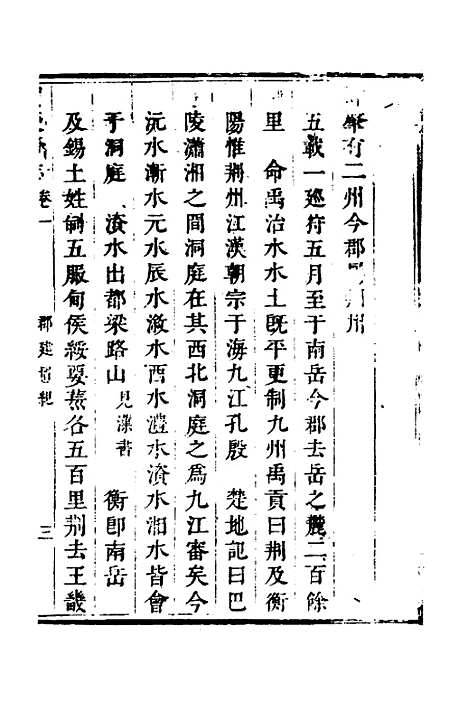 肇有二州今郡荆州屬
五載一廵狩五月至于南岳今郡去岳之麓二百餘
里　命禹治水水土既平更制九州禹貢曰荆及衡
陽惟荆州江漢朝宗于海九江孔殷　楚地記曰巴
陵瀟湘之間洞庭在其西北洞庭之為九江審矣今
沅水漸水元水辰水漵水酉水澧水資水湘水皆會
于洞庭　資水出都梁路山見漢書　衡卽南岳
及錫土姓弼五服甸侯綏要荒各五百里荆去王畿
卷一　郡建置紀　三